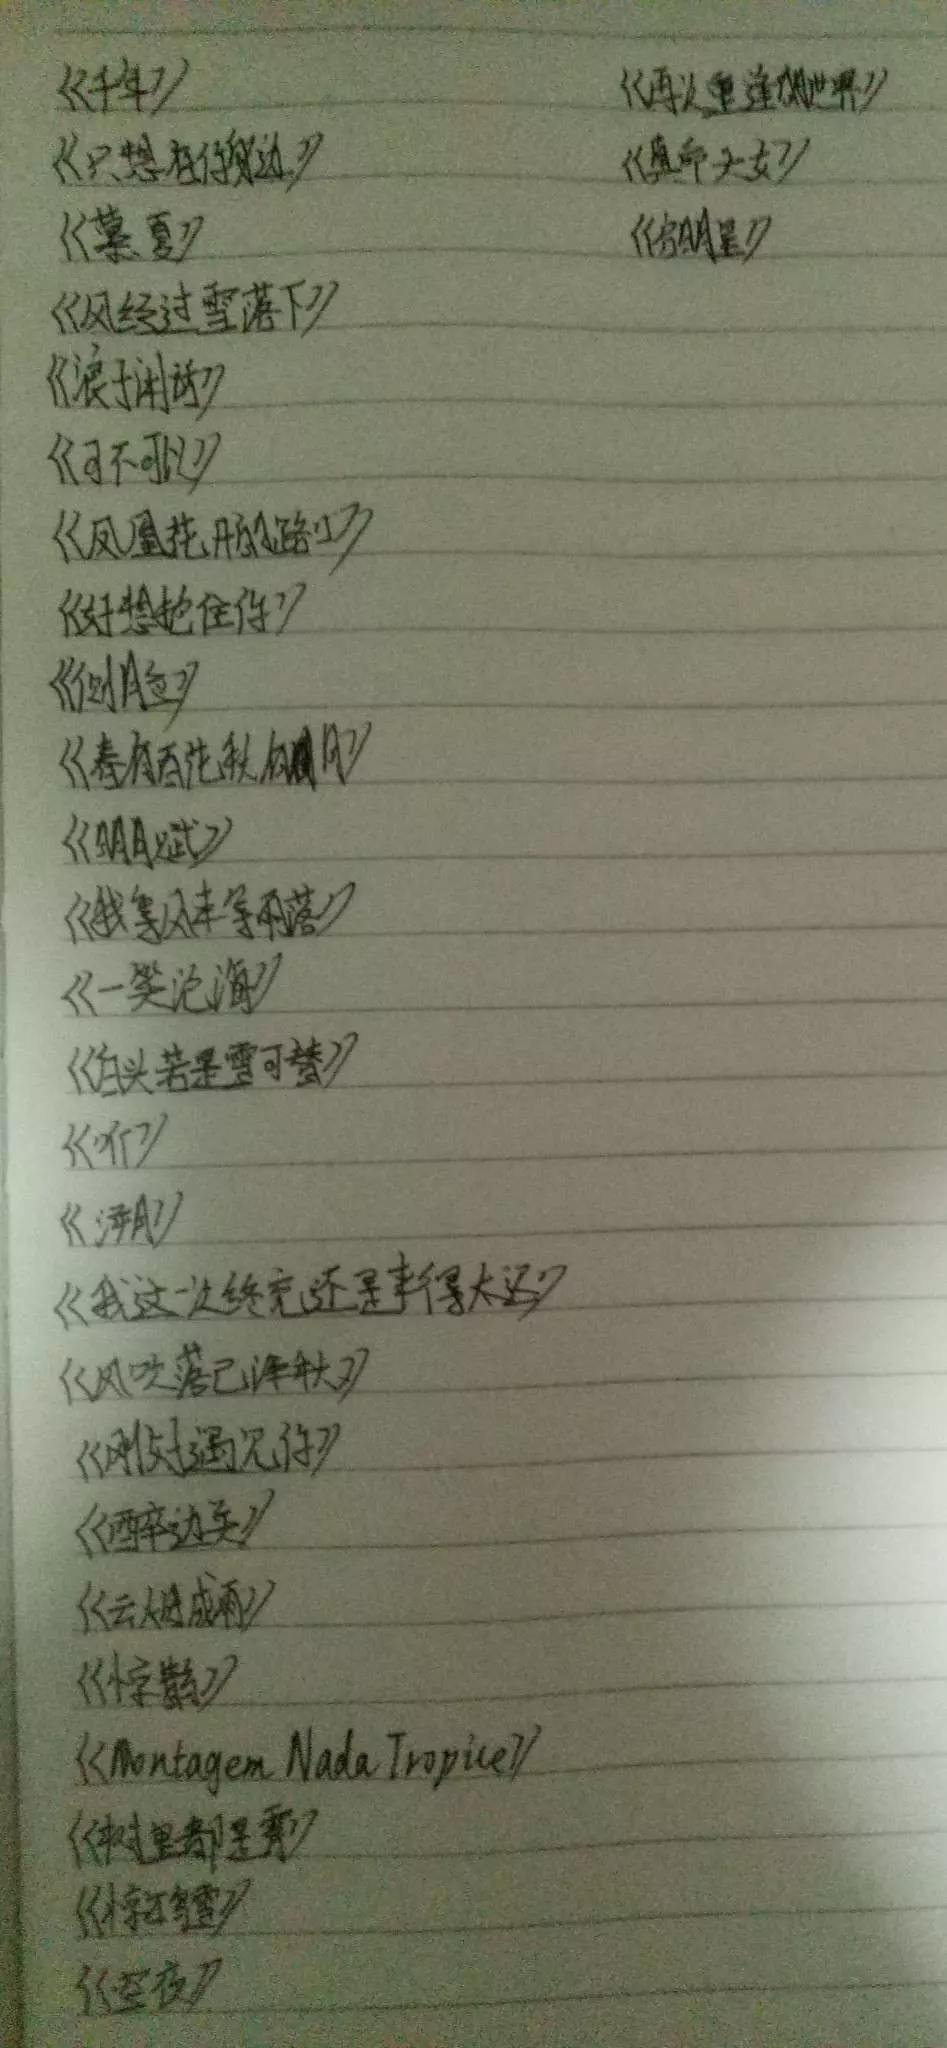 《千年》
《只想在你身边》
《慕夏》
《风经过雪落下》
《浪子闲话》
《可不可以》
《凤凰花开的路口》
《好想抱住你》
《侧月色》
《春有百花秋有月》
《明月赋》
《我等风来等雨落》
《一笑沧海》
《白头若是雪可替》
《吖》
《浮月》
《我这一次终究还是来得太迟》
《风吹落已深秋》
《刚好遇见你》
《醉边关》
《云烟成雨》
《惊鹊》
《Montagem Nada Tropice》
《树里都是雾》
《惊鸿雪》
《空夜》
《再次重逢的世界》
《真命天女》
《启明星》